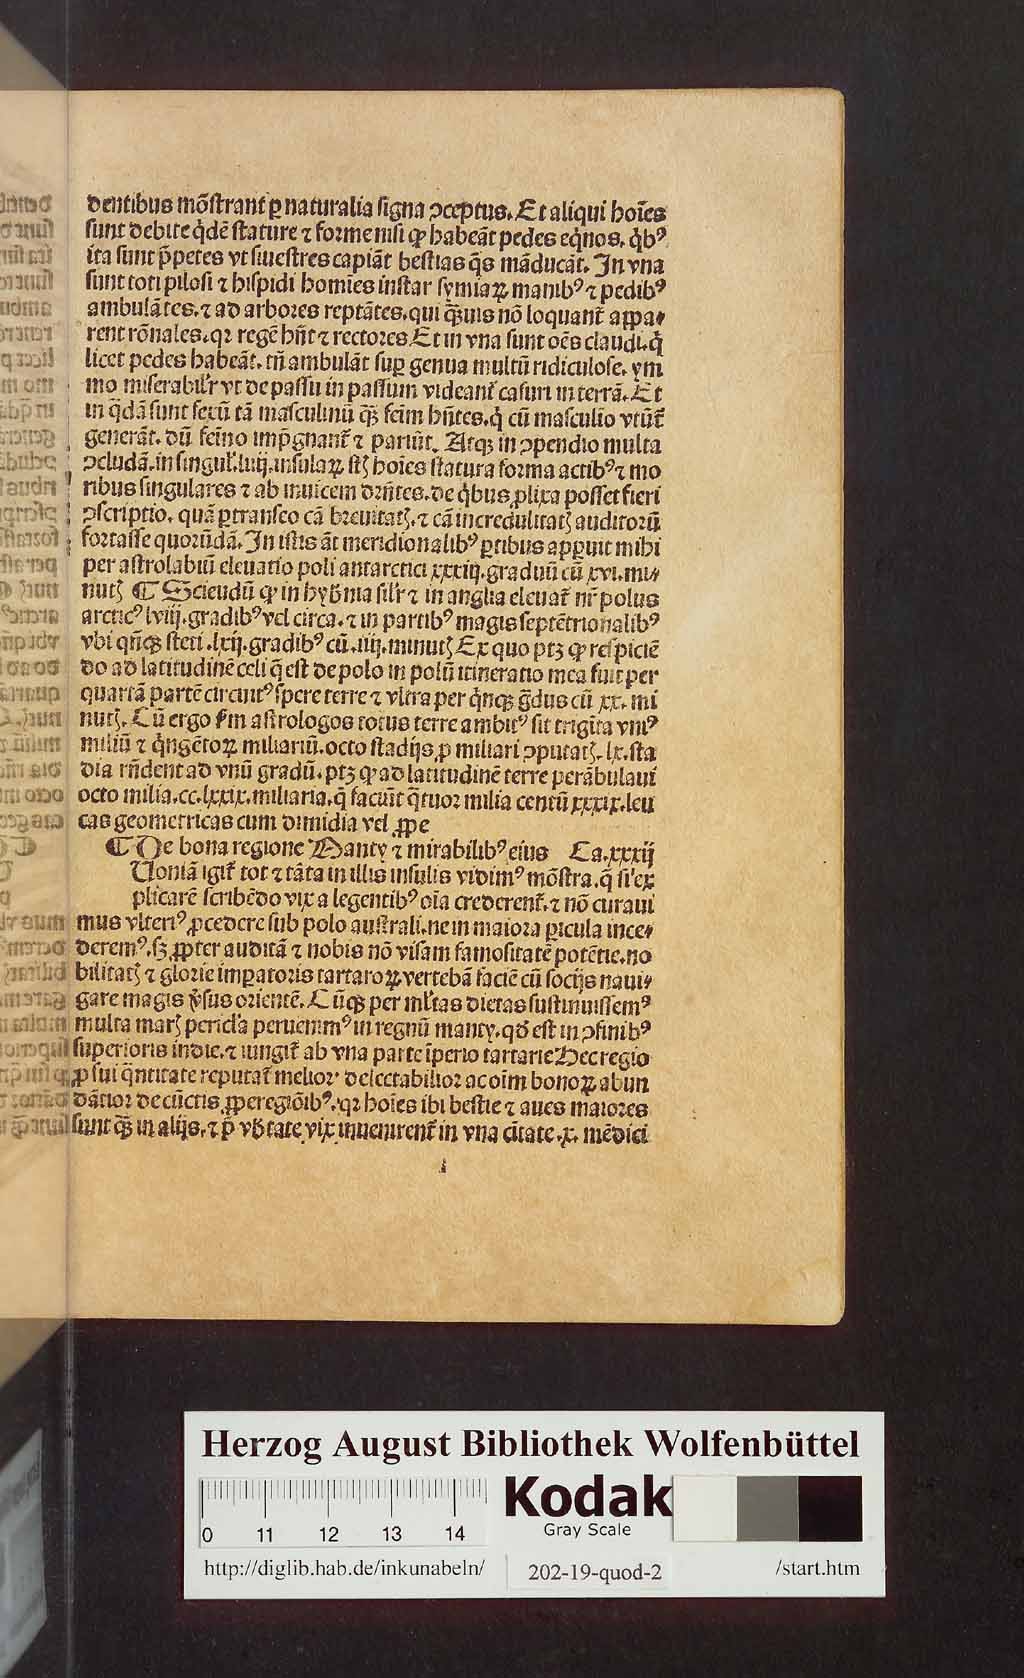 dentibus mōstrant̄ ꝑ naturalia signa ↄceptus. Et aliqui hoīes
sunt debite q̇dē stature ⁊ forme nisi ꝙ habeāt pedes eq̇nos. q̇bꝰ
ita sunt p̄petes vt siuestres capiāt bestias q̄s māducāt. In vna
sunt toti pilosi ⁊ hispidi homīes instar symiaꝝ manibꝰ ⁊ pedibꝰ
ambulātes. ⁊ ad arbores reptātes. qui q̄̈uis nō loquant̄ appa⸗
rent rōnales. qꝛ regē hn̄t ⁊ rectores Et in vna sunt oēs claudi. q̇
licet pedes habeāt. tn̄ ambulāt suꝑ genua multū ridiculose. ym
mo miserabilr̄ vt de passu in passum videant̄ casuri in terrā. Et
in q̄dā sunt sexū tā masculinū q̄̈ feīm hn̄tes. q̇ cū masculio vtūt̄
generāt. dū feīno imp̄gnant̄ ⁊ pariūt. Atqꝫ in ↄpendio multa
ↄcludā. in singul̄. luij. insulaꝝ stꝫ hoīes statura forma actibꝰ ⁊ mo
ribus singulares ⁊ ab inuicem drn̄tes. de q̇bus ꝓlixa posset fieri
ↄscriptio. quā ꝑtranseo cā breuitatꝫ. ⁊ cā incredulitatꝫ auditorū
fortasse quorūdā. In istis āt meridionalibꝰ ꝑtibus apꝑuit mihi
per astrolabiū eleuatio poli antarctici xxxiij. graduū cū xvi. mi⸗
nutꝫ ¶ Sciendū ꝙ in hyb̄nia silr̄ ⁊ in anglia eleuat̄ nr̄ polus
arcticꝰ lviij. gradibꝰ vel circa. ⁊ in partibꝰ magis septētrionalibꝰ
vbi qn̄qꝫ steti. lxij. gradibꝰ cū. iiij. minutꝫ Ex quo ptꝫ ꝙ respiciē
do ad latitudinē celi q̄ est de polo in polū itineratio mea fuit per
quartā partē circuitꝰ spere terre ⁊ vltra per q̇nqꝫ g̈dus cū xx. mi
nutꝫ. Cū ergo s̄m astrologos totus terre ambitꝰ sit trigīta vniꝰ
miliū ⁊ q̇ngētoꝝ miliariū. octo stadijs ꝓ miliari ↄputatꝫ. lx. sta
dia rn̄dent ad vnū gradū. ptꝫ ꝙ ad latitudinē terre perābulaui
octo milia. cc. lxxix. miliaria. q̄ faciūt q̄tuor milia centū xxxix. leu
cas geometricas cum dimidia vel ꝓpe
¶ De bona regione Manty ⁊ mirabilibꝰ eius Ca. xxxij
Uoniā igit̄ tot ⁊ tāta in illis insulis vidimꝰ mōstra. q̄ si ex
plicarē scribēdo vix a legentibꝰ oīa crederent̄. ⁊ nō curaui
mus vlteriꝰ ꝓcedere sub polo australi. ne in maiora ꝑicula ince⸗
deremꝰ. sꝫ ꝓpter auditā ⁊ nobis nō visam famositatē potētie. no
bilitatꝫ ⁊ glorie imꝑatoris tartaroꝝ. vertebā faciē cū socijs naui⸗
gare magis v̄sus orientē. Cūqꝫ per ml̄tas dietas sustinuissemꝰ
multa marꝫ pericl̄a peruenimꝰ in regnū manty. qd̄ est in ↄfinibꝰ
superioris indie. ⁊ iungit̄ ab vna parte īperio tartarie Hec regio
ꝓ sui q̄ntitate reputat̄ melior delectabilior ac oīm bonoꝝ abun
dātior de cūctis ꝓpe regiōibꝰ. qꝛ hoīes ibi bestie ⁊ aues maiores
sunt q̄̈ in alijs. ⁊ p̄ vb̄tate vix inuenirent̄ in vna citate. x. mēdici
i
Herzog August Bibliothek Wolfenbüttel
0 11 12 13 14
Kodak
Gray Scale
http://diglib.hab.de/inkunabeln/ 202-19-quod-2 /start.htm